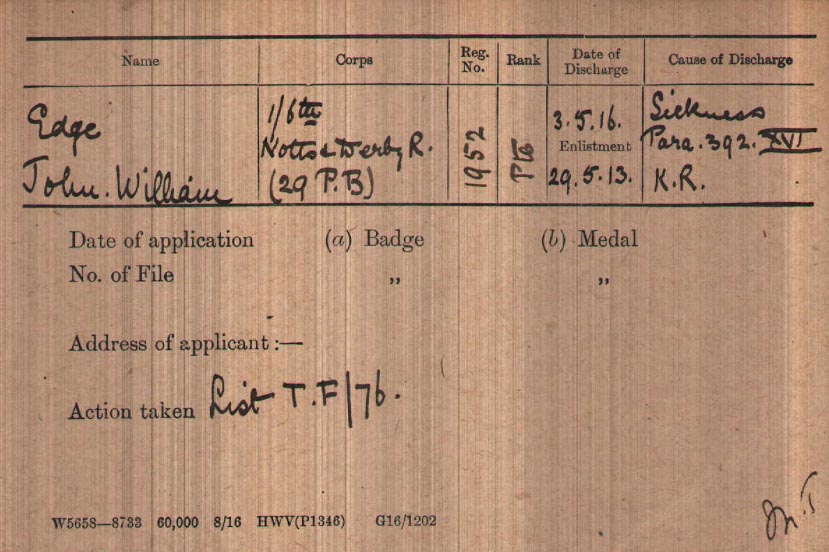 Name Corps Reg. No. Rank Date of Discharge Cause of Discharge
Edge
John. William
1/6th
Notts & Derby R.
(29 P.B)
1952
Pte
3.5.16.
Enlistment
29.5.13.
Sickness
Para. 392. XVI
K.R.
Date of application (a) Badge (b) Medal
No. of File „ „
Address of applicant :—
Action taken List T.F/76.
W5658—8733 60,000 8/16 HWV(P1346) G16/1202